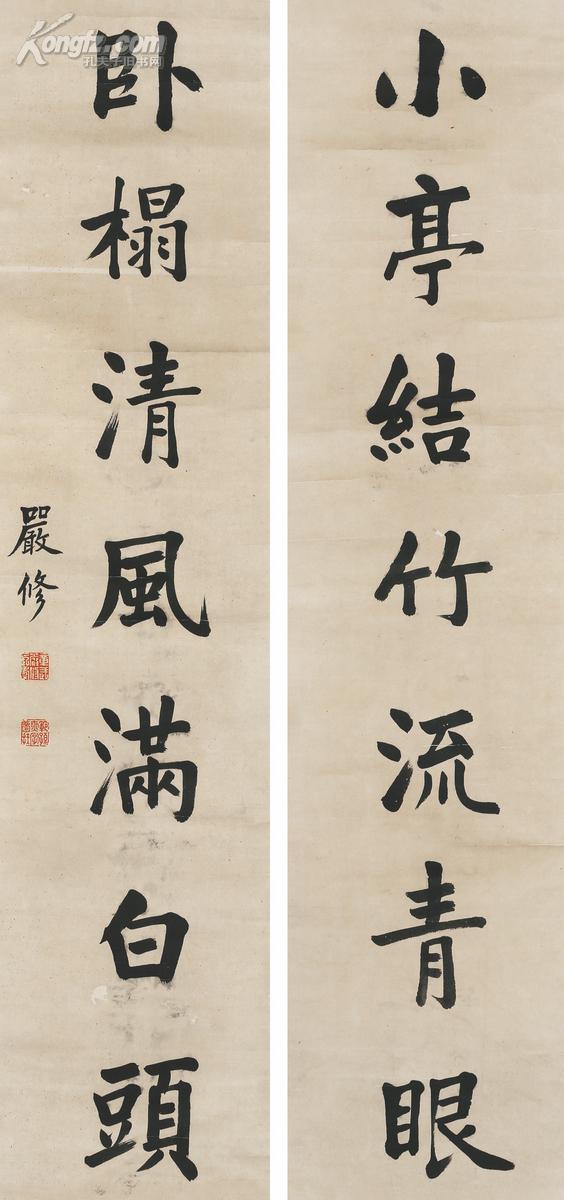 小亭結竹流青眼
卧榻清風滿白頭
嚴修
Kongfz.com
孔夫子旧书网